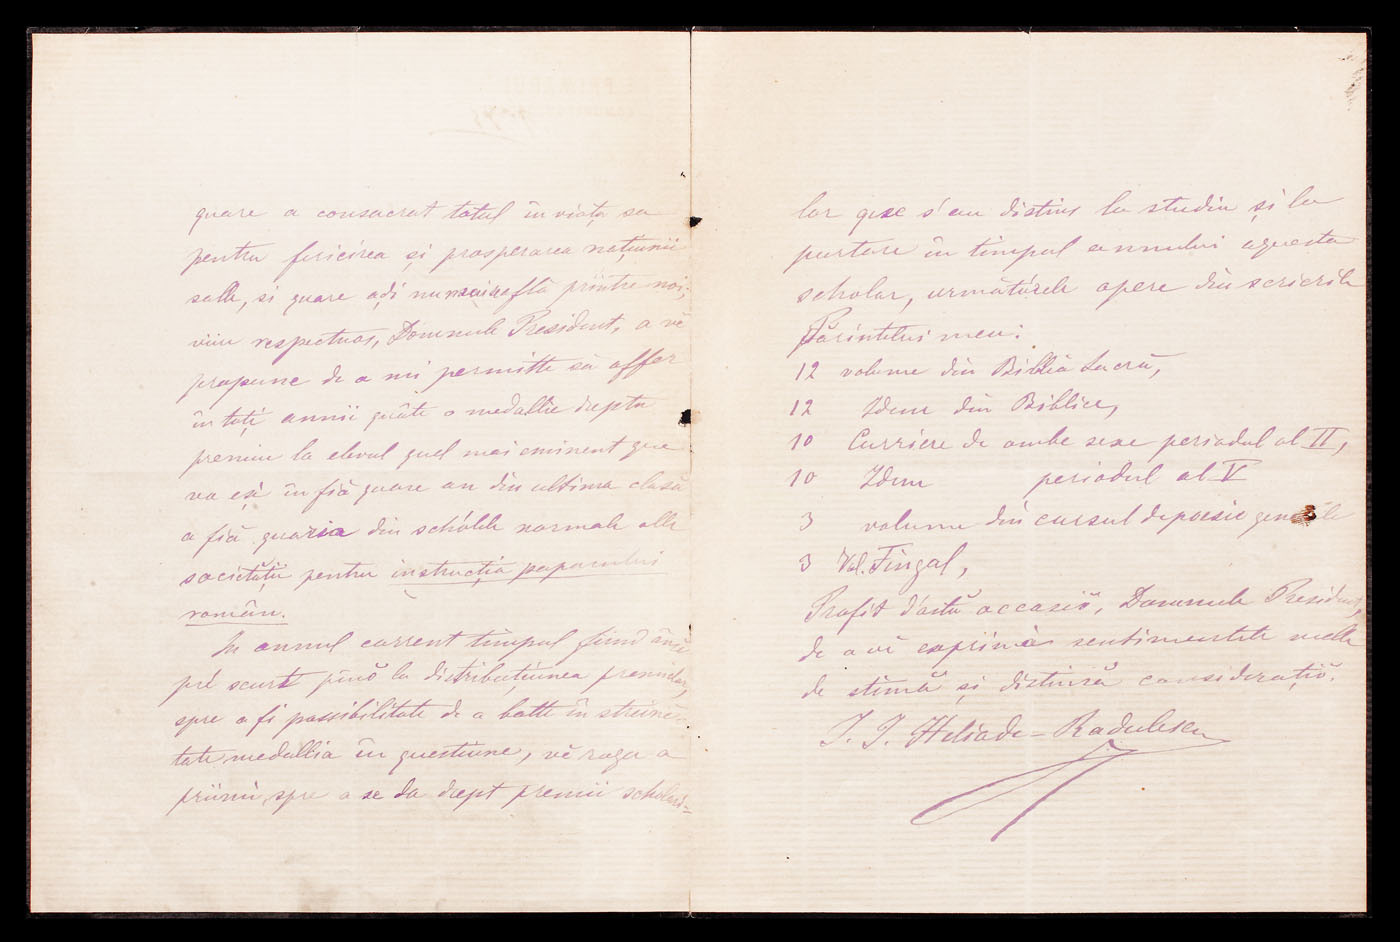 quare a consacrat totul în viața sa
pentru fericirea și prosperarea națiunii
salle, și quare adi nu mai află printre noi;
viiu respectuos, Domnule President, a vĕ
propune de a mi permitte să offer
în toți annii quâte o medallie dreptu
premiu la elevul quel mai eminent que
va eși în fiă quare an din ultima clasă
a fiă quaria din schólele normale alle
societății pentru instrucția poporului
român.
In annul current timpul fiind ânco
pré scurt pînŏ la distribuțiunea premielor,
spre a fi possibilitate de a batte în streinĕ-
tate medallia în questiune, vĕ rogu a
priimi, spre a se da drept premii scholari-
lor que s'au distins la studiu și la
purtare în timpul annului aquesta
scholar, urmatórele opere din scrierile
Părintelui meu:
12 volume din Biblia Sacră,
12 Idem din Biblice,
10 Curriere de ambe sexe periodul al II,
10 Idem periodul al V
3 volume din cursul de poesie generale
3 Vol. Fingal,
Profit d'astă occasiŏ, Domnule President,
de a vĕ exprima sentimentele melle
de stimă și distinsă considerațiŏ.
I. I. Heliade-Radulescu